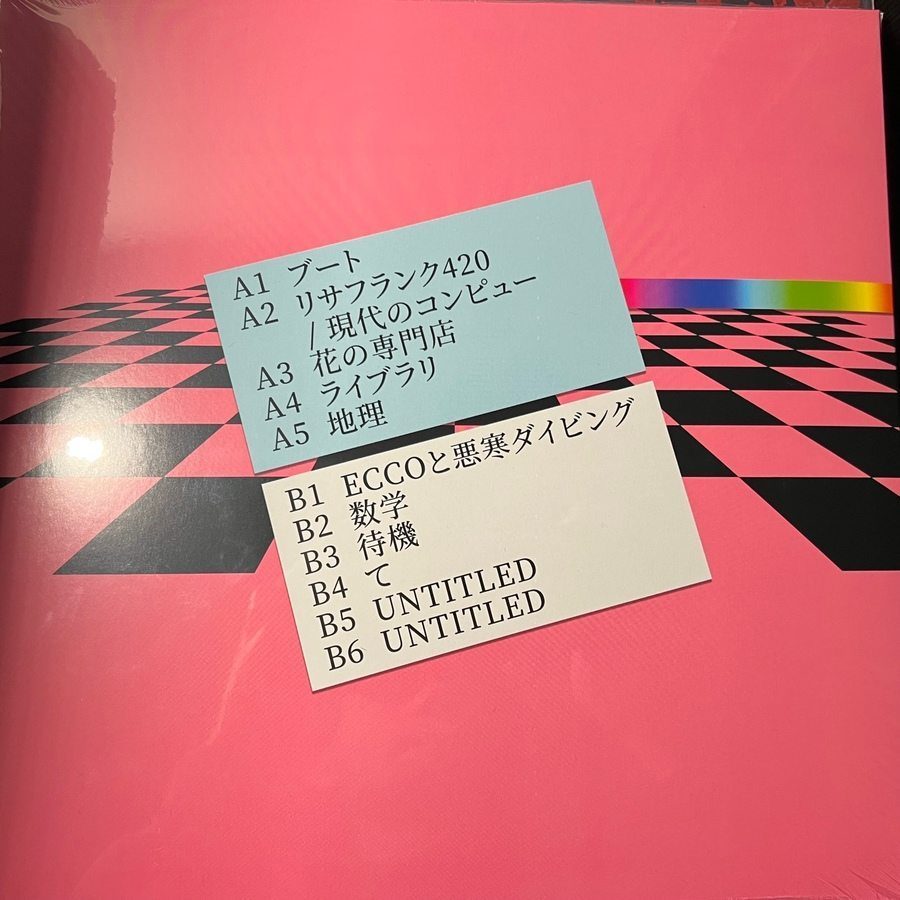 A1 ブート
A2 リサフランク420
/ 現代のコンピュー
A3 花の専門店
A4 ライブラリ
A5 地理
B1 ECCOと悪寒ダイビング
B2 数学
B3 待機
B4 て
B5 UNTITLED
B6 UNTITLED